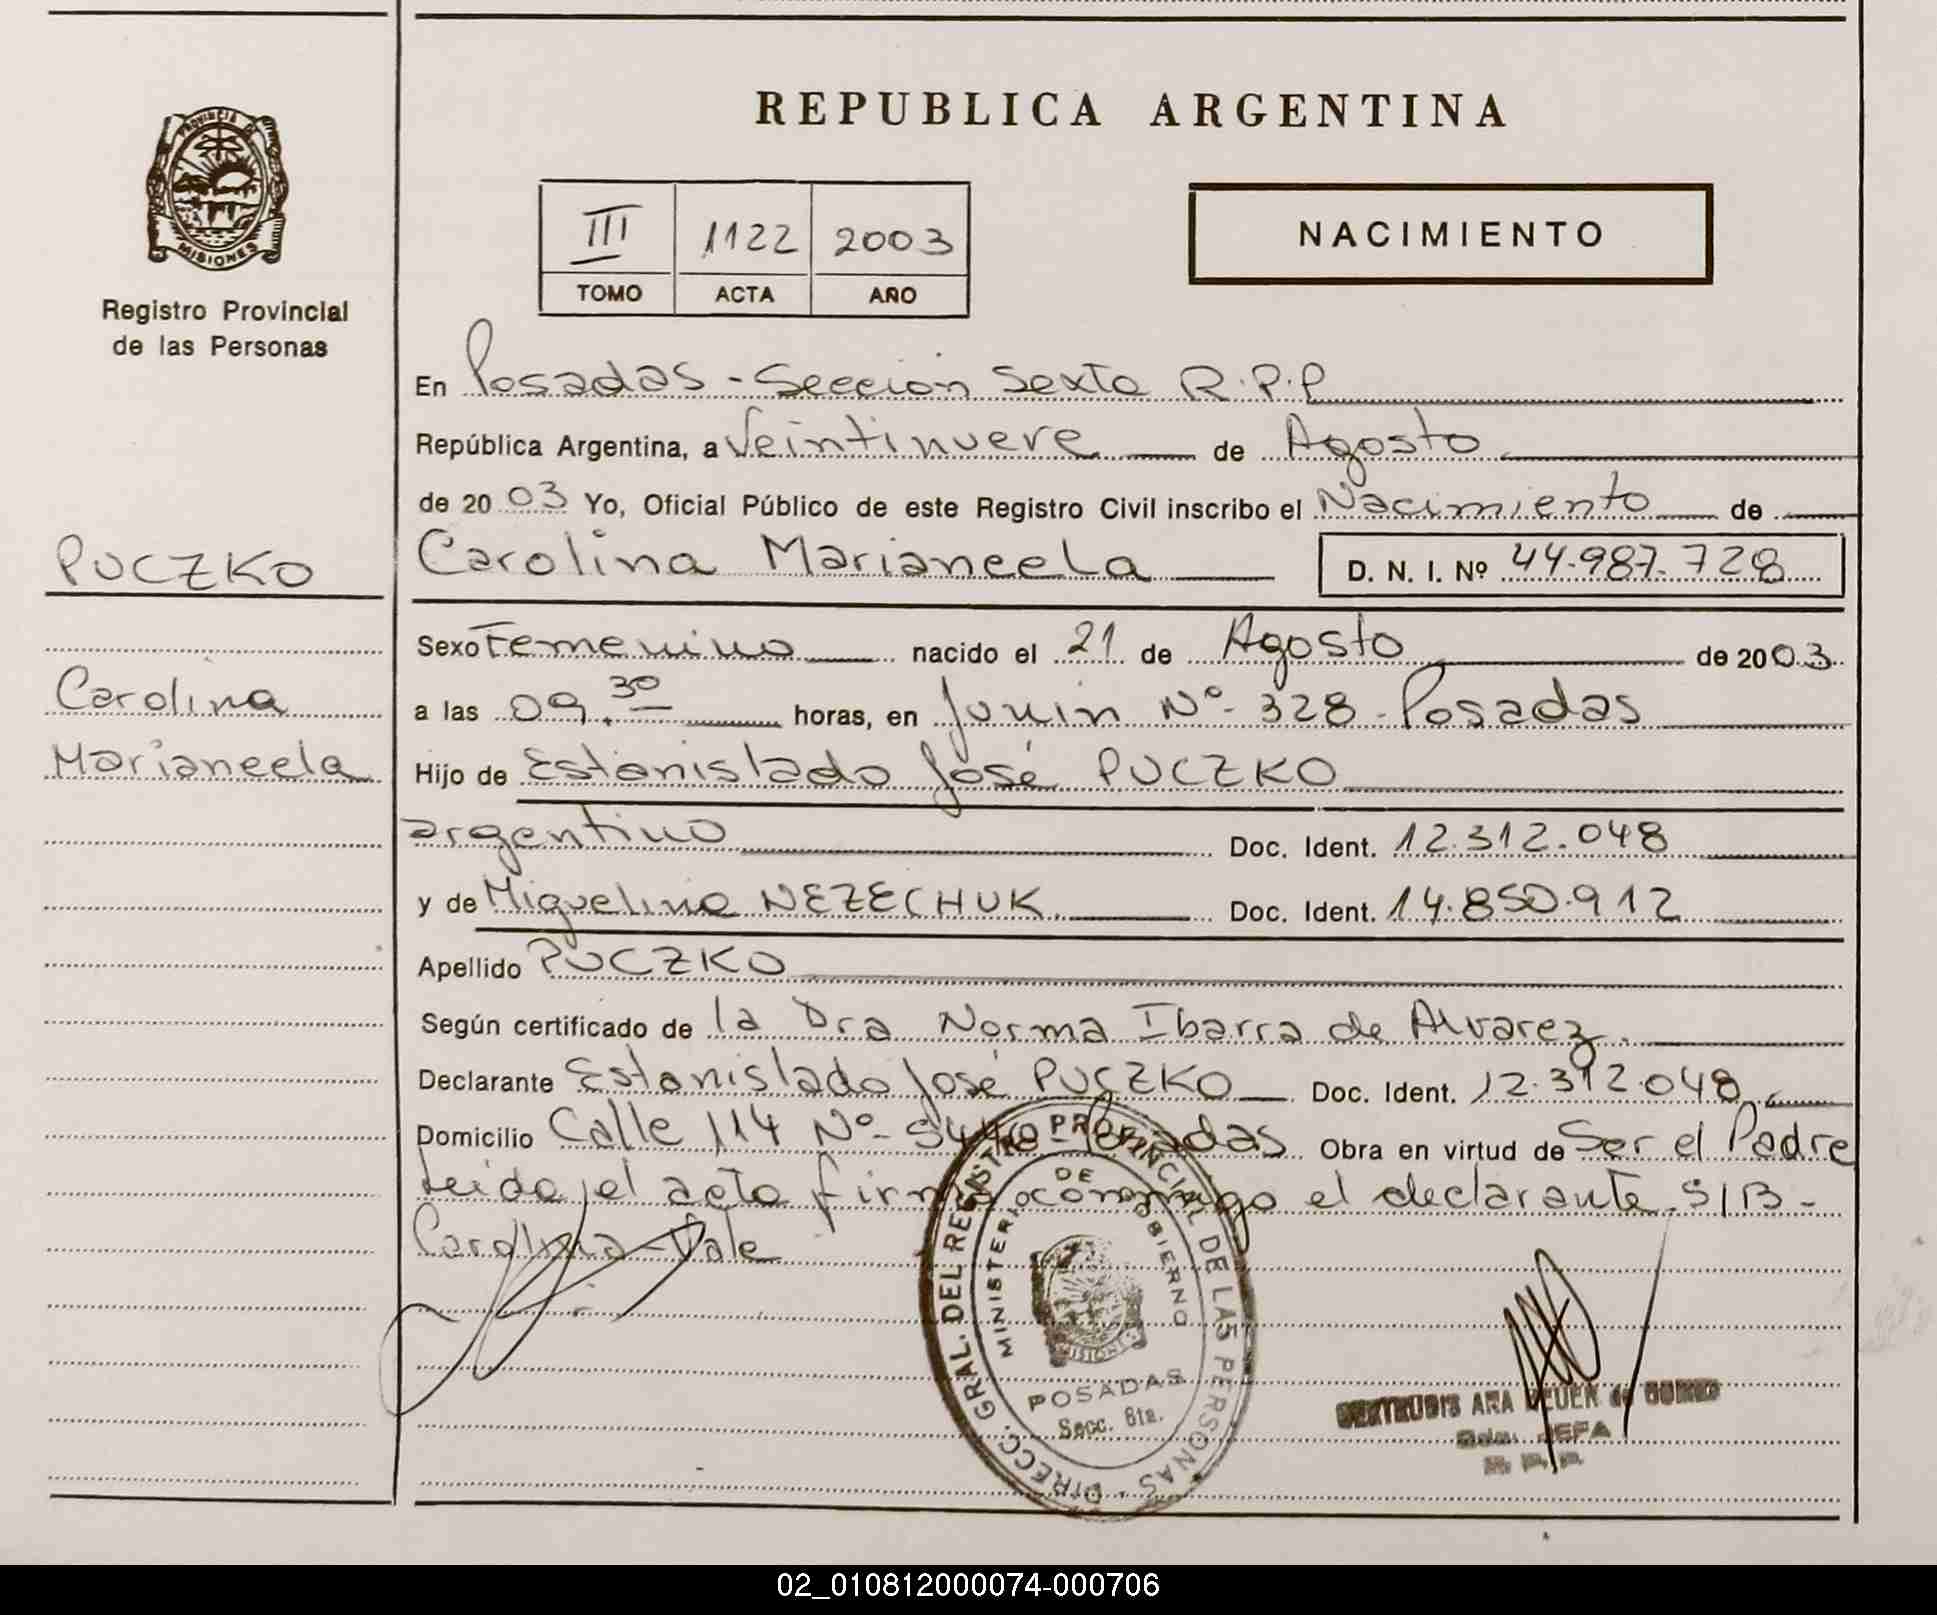 REPUBLICA ARGENTINA
PROVINCIA DE
MISIONES
Registro Provincial
de las Personas
III 1122 2003
TOMO ACTA AÑO
NACIMIENTO
En Posadas - Seccion Sexta R.P.P
República Argentina, a Veintinueve de Agosto
de 2003 Yo, Oficial Público de este Registro Civil inscribo el Nacimiento de
PUCZKO
Carolina Marianeela D. N. I. Nº 44.987.728
Sexo Femenino nacido el 21 de Agosto de 2003
Carolina
a las 09.30 horas, en Junin Nº 328 - Posadas
Marianeela
Hijo de Estanislado José PUCZKO
argentino Doc. Ident. 12.312.048
y de Miguelina NEZECHUK. Doc. Ident. 14.850.912
Apellido PUCZKO
Según certificado de la Dra Norma Ibarra de Alvarez.
Declarante Estanislado José PUCZKO Doc. Ident. 12.312.048
Domicilio Calle 114 Nº Posadas Obra en virtud de Ser el Padre
Leida el acta firma conmigo el declarante. S/B -
Carolina - Vale
DIRECC. GRAL. DEL REGISTRO PROVINCIAL DE LAS PERSONAS
MINISTERIO DE GOBIERNO
MISIONES
POSADAS
Secc. 6ta.
GERTRUDIS ANA de GOMEZ
JEFA
R. P. P.
02_010812000074-000706